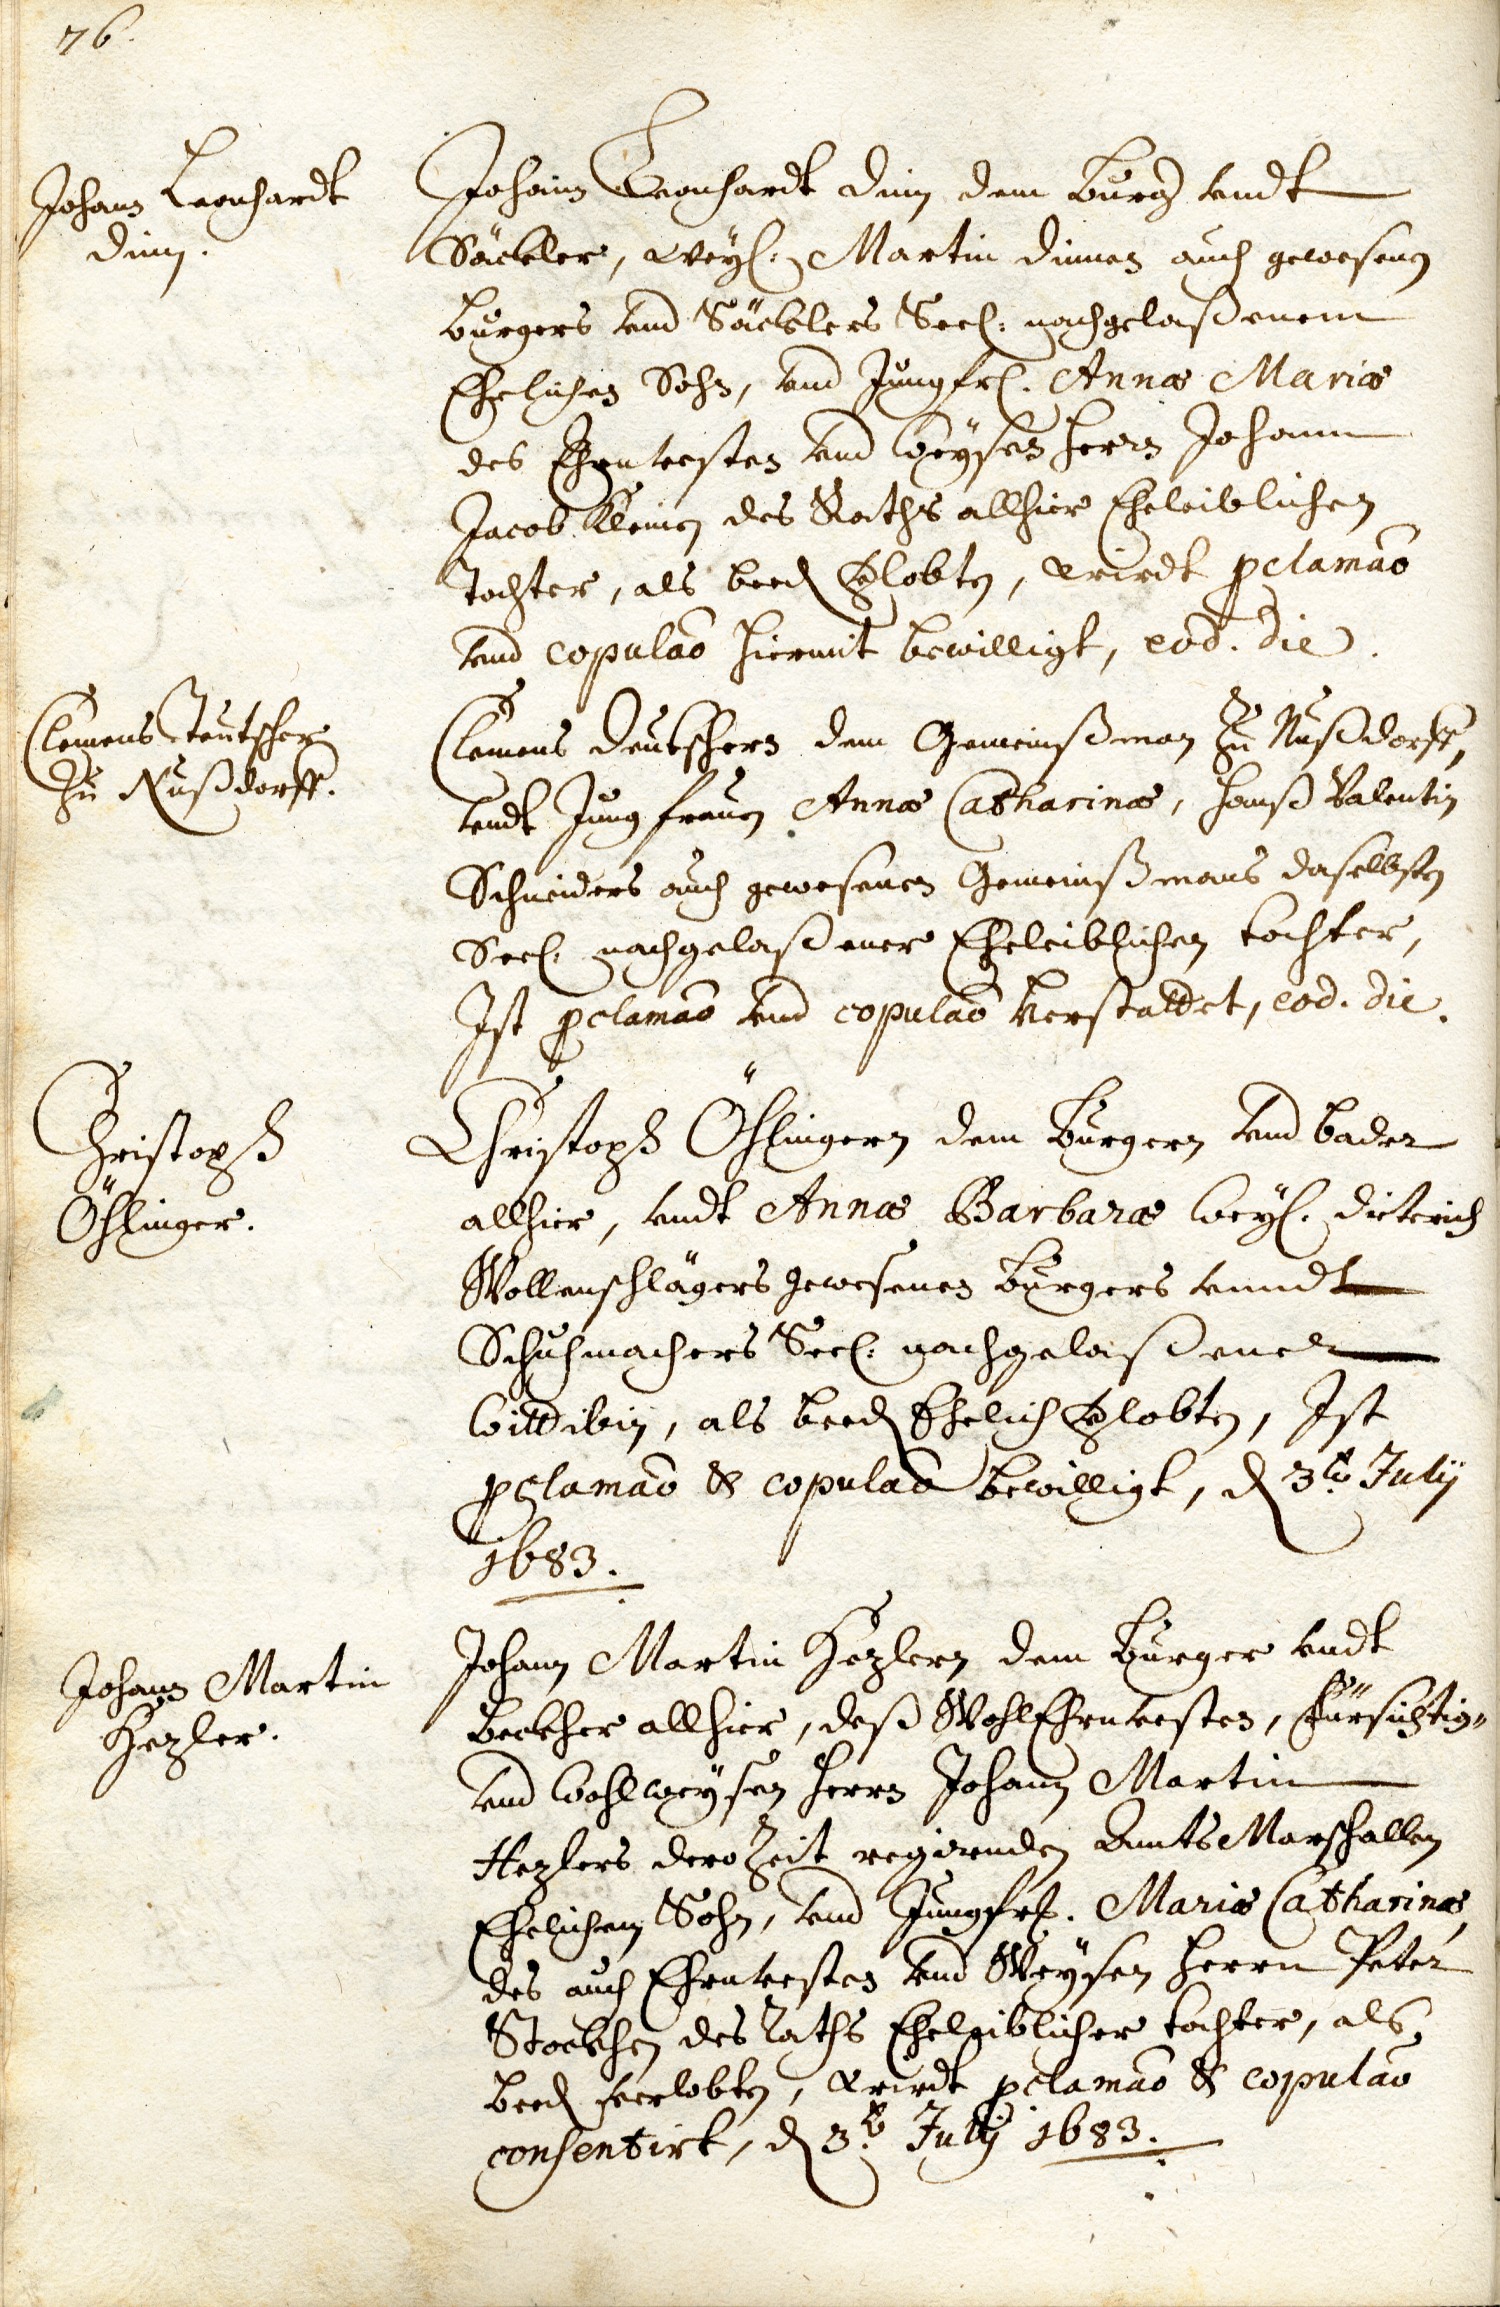 76.
Johann Leonhardt
Dinn.
Johann Leonhardt Dinn dem Burg. undt
Säckler, Weyl: Martin Dinnen auch gewesenen
Burgers und Säcklers Seel: nachgelaßenem
Ehelichen Sohn, und Jungfrl. Annæ Mariæ
des Ehrnvesten und Weysen Herrn Johann
Jacob Kleinen des Raths allhier Eheleiblichen
Tochter, als beed Verlobten, wirdt pclamão
und copulaõ hiermit bewilligt, eod. die.
Clemens Teutscher
zu Nußdorff.
Clemens Deutschern dem Gemeinßman zu Nußdorff,
undt Jungfrauen Annæ Catharinæ, Hanß Valentin
Schneiders auch gewesenen Gemeinßmans daselbsten
Seel: nachgelaßener Eheleiblichen tochter,
Ist pclamaõ und copulaõ verstattet, eod. die.
Christoph
Öhlinger.
Christoph Öhlingern dem Burgern und bader
allhier, undt Annæ Barbaræ Weyl. Dieterich
Wollenschlägers gewesenen Burgers unndt
Schuhmachers Seel: nachgelaßener
Wittibin, als beed Ehelich Verlobten, Ist
pclamaõ & copulaõ bewilligt, d 3t. July
1683.
Johann Martin
Hezler.
Johann Martin Hezlern dem Burger undt
Beckher allhier, deß WohlEhrnvesten, Fürsichtig=
und Wohlweysen Herrn Johann Martin
Hezlers dero Zeit regirenden Ambts Marschallen
Ehelichem Sohn, und Jungfrl. Mariæ Catharinæ
des auch Ehrnvesten und Weysen Herrn Peter
Stöckhen des Raths Eheleiblicher tochter, als
beed verlobten, wirdt pclamaõ & copulaõ
consentirt, d 3t. July 1683.